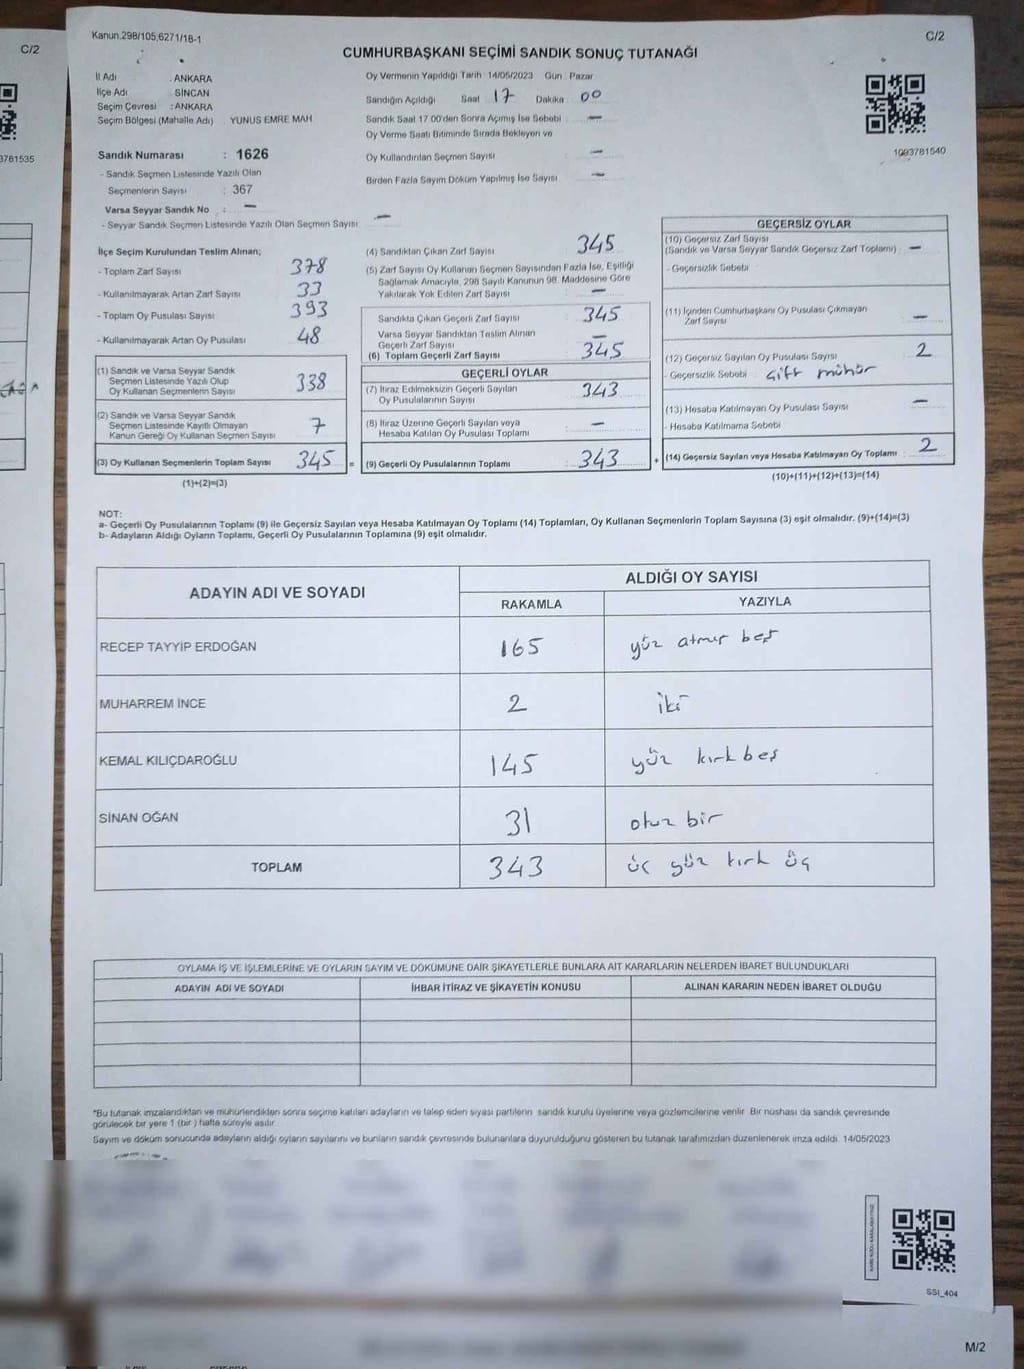 C/2
3781535
Kanun.298/105,6271/18-1
C/2
CUMHURBAŞKANI SEÇİMİ SANDIK SONUÇ TUTANAĞI
İl Adı : ANKARA
İlçe Adı : SİNCAN
Seçim Çevresi : ANKARA
Seçim Bölgesi (Mahalle Adı) : YUNUS EMRE MAH
Sandık Numarası : 1626
- Sandık Seçmen Listesinde Yazılı Olan
Seçmenlerin Sayısı : 367
Varsa Seyyar Sandık No : —
- Seyyar Sandık Seçmen Listesinde Yazılı Olan Seçmen Sayısı : —
Oy Vermenin Yapıldığı Tarih 14/05/2023 Gün : Pazar
Sandığın Açıldığı Saat 17 Dakika 00
Sandık Saat 17.00'den Sonra Açmış İse Sebebi : —
Oy Verme Saati Bitiminde Sırada Bekleyen ve
Oy Kullandırılan Seçmen Sayısı : —
Birden Fazla Sayım Döküm Yapılmış İse Sayısı : —
1093781540
İlçe Seçim Kurulundan Teslim Alınan;
- Toplam Zarf Sayısı : 378
- Kullanılmayarak Artan Zarf Sayısı : 33
- Toplam Oy Pusulası Sayısı : 393
- Kullanılmayarak Artan Oy Pusulası : 48
(1) Sandık ve Varsa Seyyar Sandık
Seçmen Listesinde Yazılı Olup
Oy Kullanan Seçmenlerin Sayısı : 338
(2) Sandık ve Varsa Seyyar Sandık
Seçmen Listesinde Kayıtlı Olmayan
Kanun Gereği Oy Kullanan Seçmen Sayısı : 7
(3) Oy Kullanan Seçmenlerin Toplam Sayısı : 345 =
(1)+(2)=(3)
(4) Sandıktan Çıkan Zarf Sayısı : 345
(5) Zarf Sayısı Oy Kullanan Seçmen Sayısından Fazla İse, Eşitliği
Sağlamak Amacıyla, 298 Sayılı Kanunun 98. Maddesine Göre
Yakılarak Yok Edilen Zarf Sayısı : —
Sandıkta Çıkan Geçerli Zarf Sayısı : 345
Varsa Seyyar Sandıktan Teslim Alınan
Geçerli Zarf Sayısı : —
(6) Toplam Geçerli Zarf Sayısı : 345
GEÇERLİ OYLAR
(7) İtiraz Edilmeksizin Geçerli Sayılan
Oy Pusulalarının Sayısı : 343
(8) İtiraz Üzerine Geçerli Sayılan veya
Hesaba Katılan Oy Pusulası Toplamı : —
(9) Geçerli Oy Pusulalarının Toplamı : 343 +
GEÇERSİZ OYLAR
(10) Geçersiz Zarf Sayısı
(Sandık ve Varsa Seyyar Sandık Geçersiz Zarf Toplamı) : —
- Geçersizlik Sebebi
(11) İçinden Cumhurbaşkanı Oy Pusulası Çıkmayan
Zarf Sayısı : —
(12) Geçersiz Sayılan Oy Pusulası Sayısı : 2
- Geçersizlik Sebebi : çift mühür
(13) Hesaba Katılmayan Oy Pusulası Sayısı : —
- Hesaba Katılmama Sebebi
(14) Geçersiz Sayılan veya Hesaba Katılmayan Oy Toplamı : 2
(10)+(11)+(12)+(13)=(14)
NOT:
a- Geçerli Oy Pusulalarının Toplamı (9) ile Geçersiz Sayılan veya Hesaba Katılmayan Oy Toplamı (14) Toplamları, Oy Kullanan Seçmenlerin Toplam Sayısına (3) eşit olmalıdır. (9)+(14)=(3)
b- Adayların Aldığı Oyların Toplamı, Geçerli Oy Pusulalarının Toplamına (9) eşit olmalıdır.
ADAYIN ADI VE SOYADI
ALDIĞI OY SAYISI
RAKAMLA YAZIYLA
RECEP TAYYİP ERDOĞAN 165 yüz atmış beş
MUHARREM İNCE 2 iki
KEMAL KILIÇDAROĞLU 145 yüz kırk beş
SİNAN OĞAN 31 otuz bir
TOPLAM 343 üç yüz kırk üç
OYLAMA İŞ VE İŞLEMLERİNE VE OYLARIN SAYIM VE DÖKÜMÜNE DAİR ŞİKAYETLERLE BUNLARA AİT KARARLARIN NELERDEN İBARET BULUNDUKLARI
ADAYIN ADI VE SOYADI İHBAR İTİRAZ VE ŞİKAYETİN KONUSU ALINAN KARARIN NEDEN İBARET OLDUĞU
*Bu tutanak imzalandıktan ve mühürlendikten sonra seçime katılan adayların ve talep eden siyasi partilerin sandık kurulu üyelerine veya gözlemcilerine verilir. Bir nüshası da sandık çevresinde
görülecek bir yere 1 (bir) hafta süreyle asılır
Sayım ve döküm sonucunda adayların aldığı oyların sayılarını ve bunların sandık çevresinde bulunanlara duyurulduğunu gösteren bu tutanak tarafımızdan düzenlenerek imza edildi. 14/05/2023
SSI_404
M/2